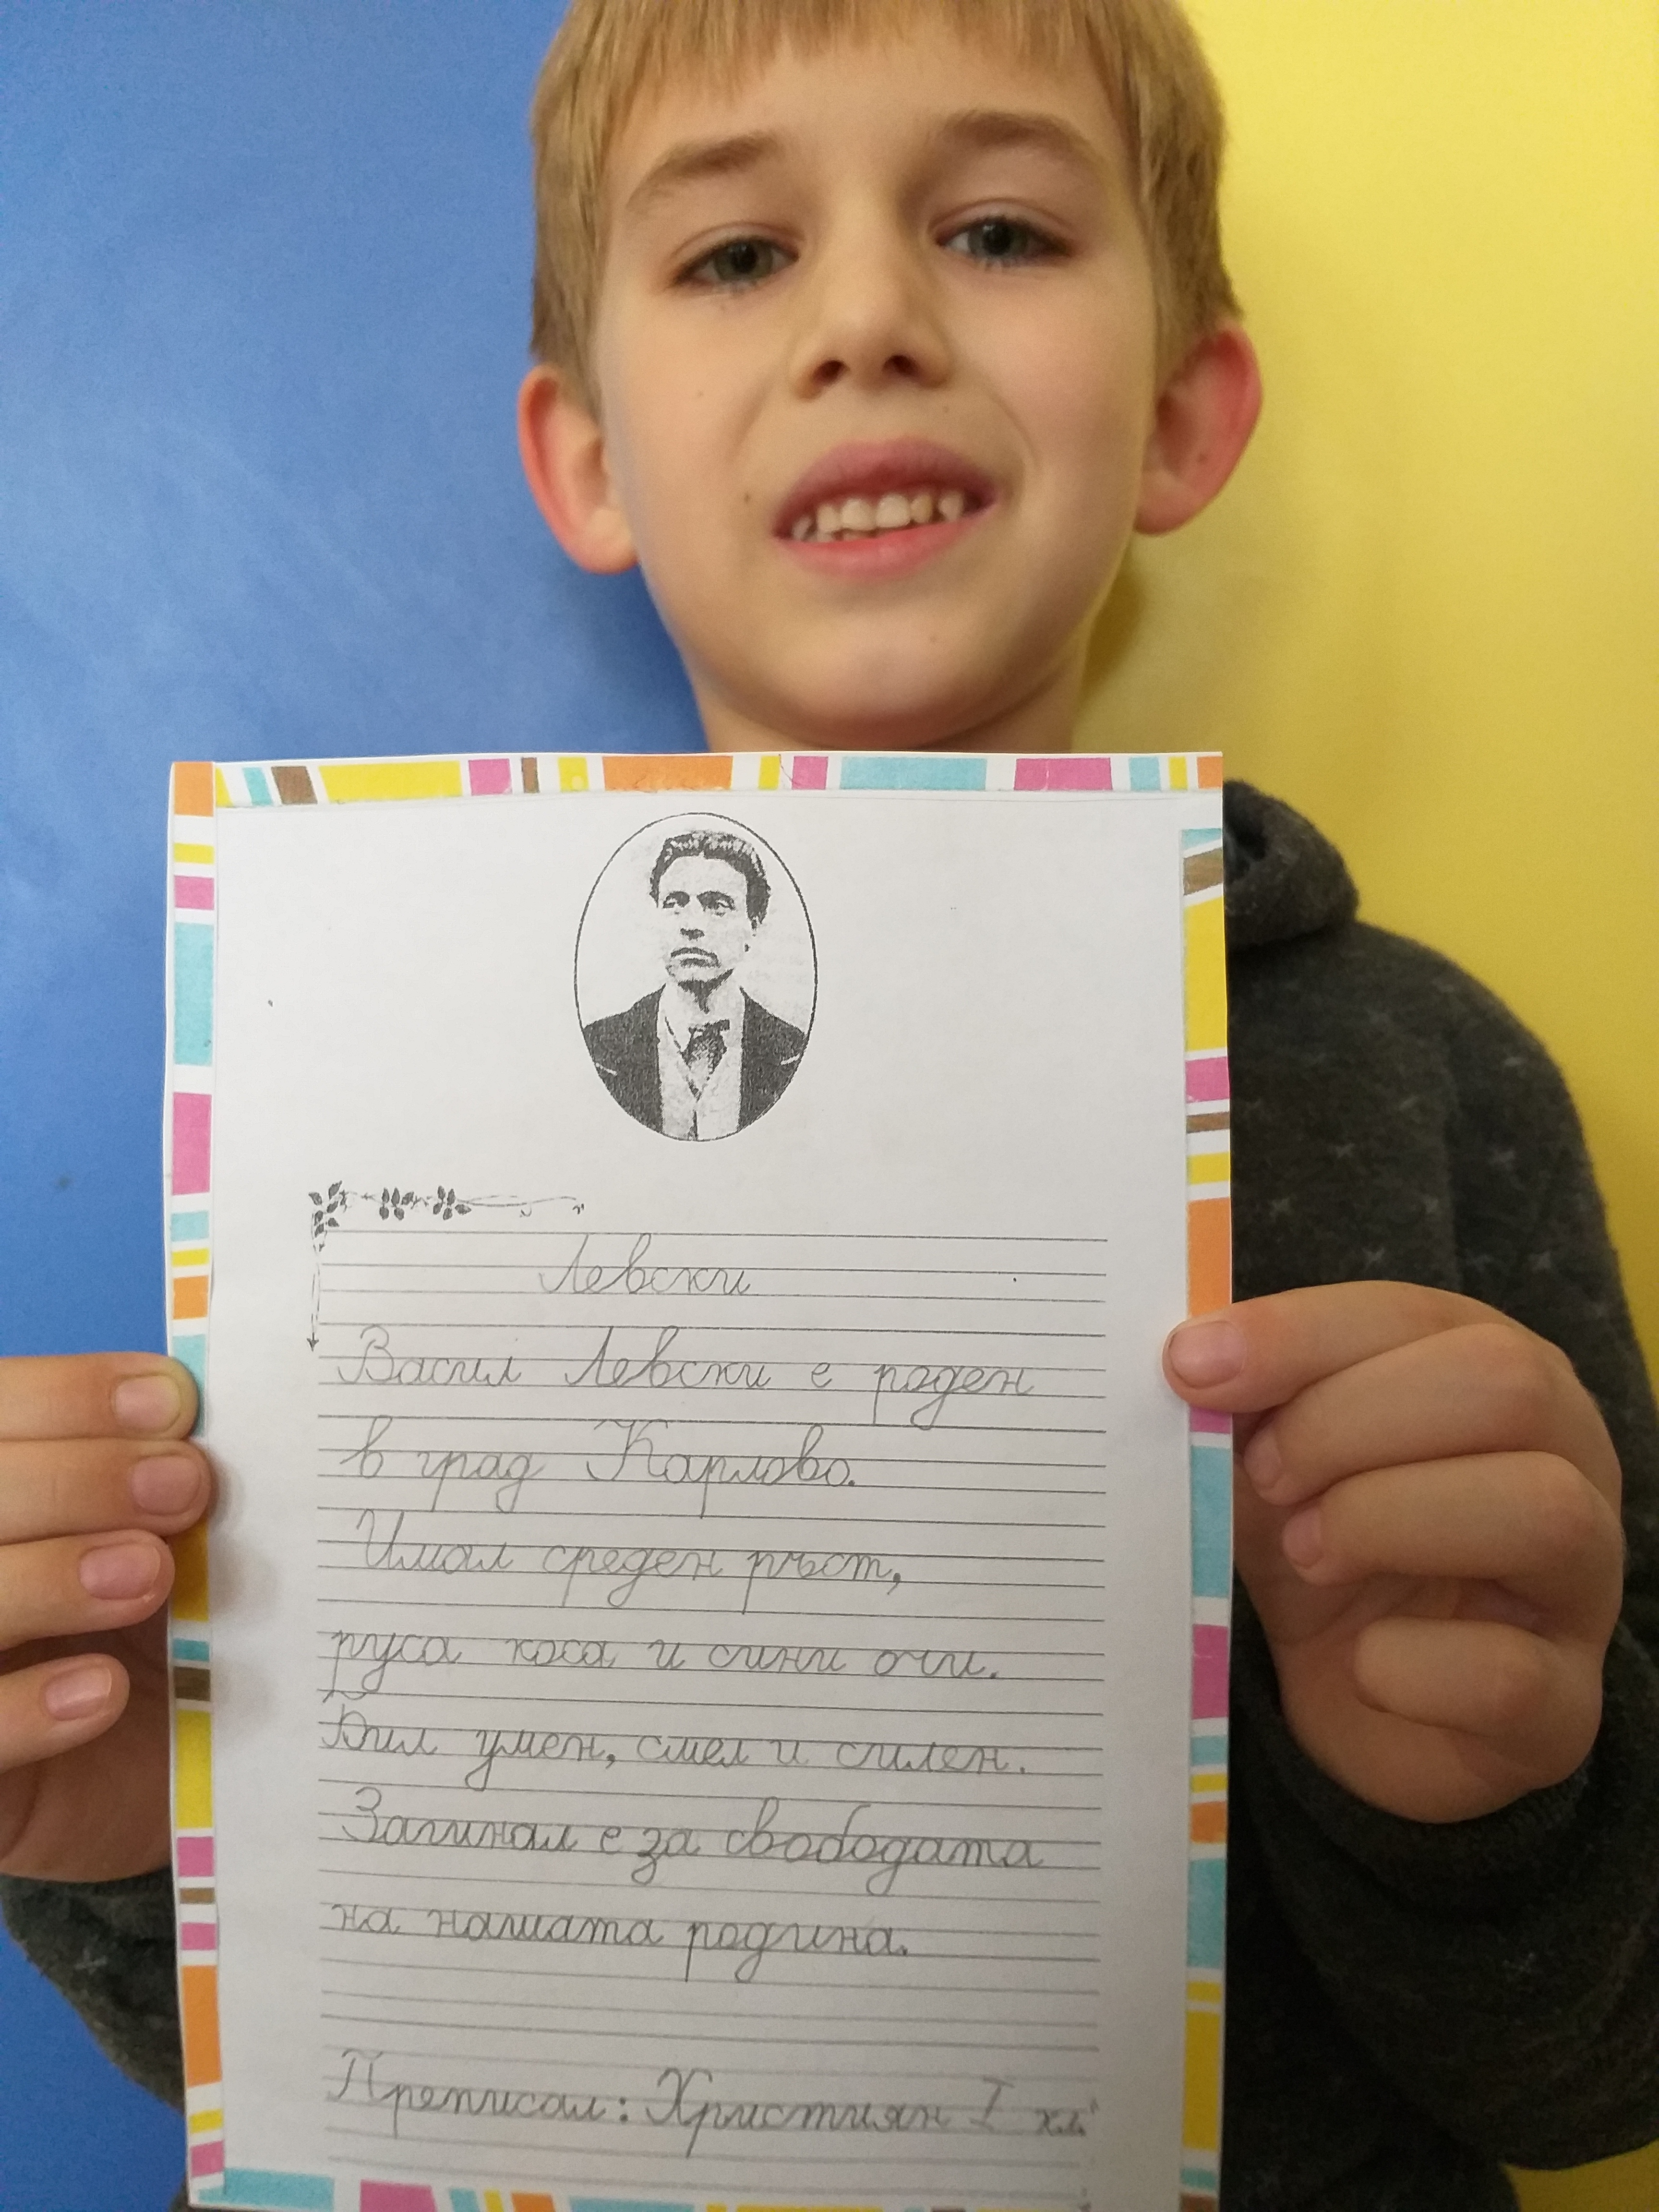 Левски
Васил Левски е роден
в град Карлово.
Имал среден ръст,
руса коса и сини очи.
Бил умен, смел и силен.
Загинал е за свободата
на нашата родина.
Преписал: Християн I кл.